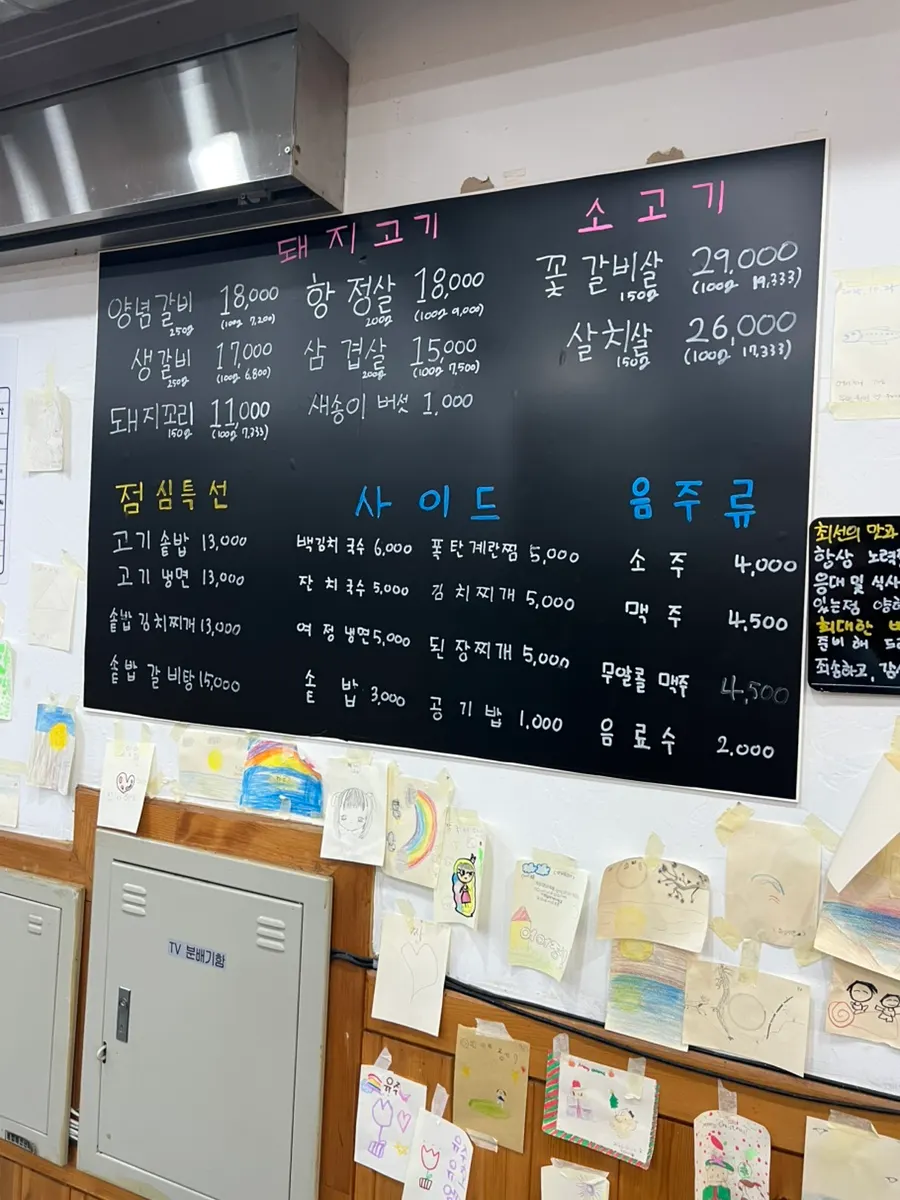 돼지고기
양념갈비 250g 18,000 (100g 7,200)
생갈비 250g 17,000 (100g 6,800)
돼지꼬리 150g 11,000 (100g 7,333)
항정살 200g 18,000 (100g 9,000)
삼겹살 200g 15,000 (100g 7,500)
새송이 버섯 1,000
소고기
꽃갈비살 150g 29,000 (100g 19,333)
살치살 150g 26,000 (100g 17,333)
점심특선
고기솥밥 13,000
고기냉면 13,000
솥밥김치찌개 13,000
솥밥 갈비탕 15,000
사이드
백김치국수 6,000
잔치국수 5,000
여정냉면 5,000
솥밥 3,000
폭탄계란찜 5,000
김치찌개 5,000
된장찌개 5,000
공기밥 1,000
음주류
소주 4,000
맥주 4,500
무알콜 맥주 4,500
음료수 2,000
최선의 맛과
항상 노력
응대 및 식사
있는점 양해
최대한
준비해 드
죄송하고, 감사
TV 분배기함
유주